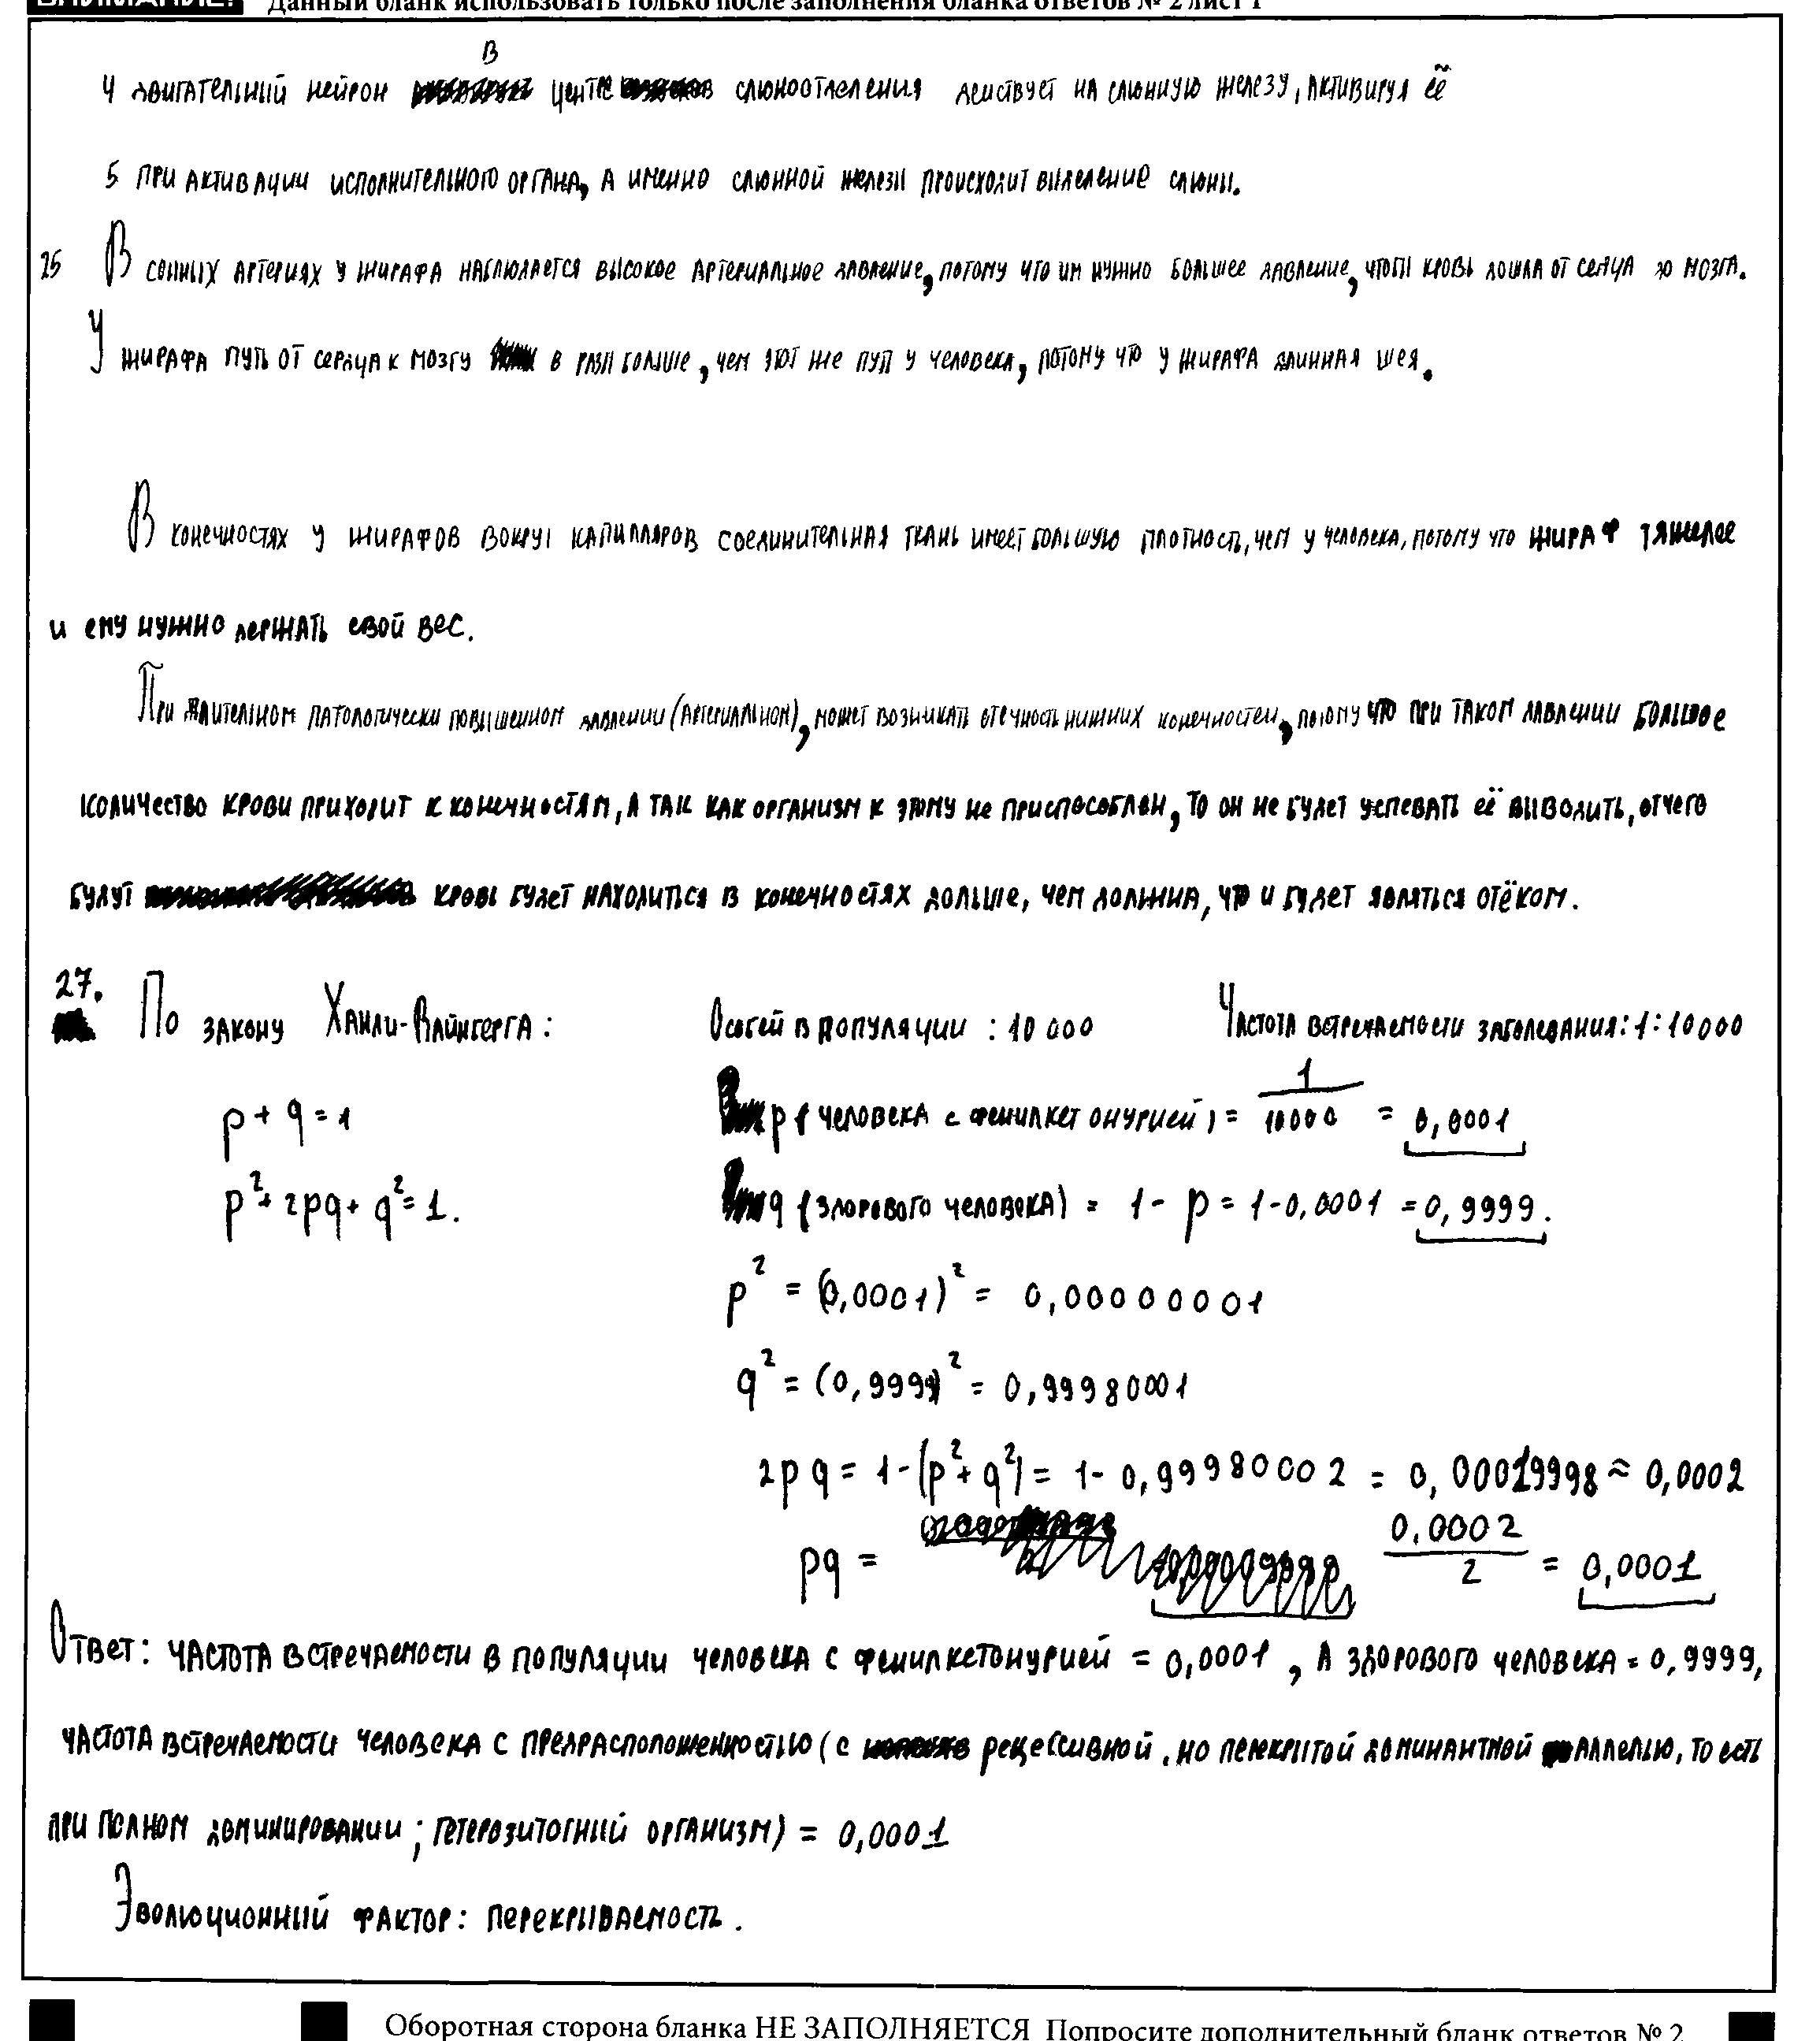 ВНИМАНИЕ! Данный бланк использовать только после заполнения бланка ответов № 2 лист 1
4 двигательный нейрон в центре слюноотделения действует на слюнную железу, активируя её
5 при активации исполнительного органа, а именно слюнной железы происходит выделение слюны.
25 В сонных артериях у жирафа наблюдается высокое артериальное давление, потому что им нужно большее давление, чтобы кровь дошла от сердца до мозга.
У жирафа путь от сердца к мозгу в разы больше, чем этот же путь у человека, потому что у жирафа длинная шея.
В конечностях у жирафов вокруг капилляров соединительная ткань имеет большую плотность, чем у человека, потому что жираф тяжелее
и ему нужно держать свой вес.
При длительном патологически повышенном давлении (артериальном), может возникать отечность нижних конечностей, потому что при таком давлении большое
количество крови приходит к конечностям, а так как организм к этому не приспособлен, то он не будет успевать её выводить, отчего
будут кровь будет находиться в конечностях дольше, чем должна, что и будет являться отёком.
27. По закону Харди-Вайнберга: Особей в популяции : 10 000 Частота встречаемости заболевания: 1:10000
p + q = 1 p (человека с фенилкетонурией) = 1/10000 = 0,0001
p² + 2pq + q² = 1. q (здорового человека) = 1 - p = 1 - 0,0001 = 0,9999.
p² = (0,0001)² = 0,00000001
q² = (0,9999)² = 0,99980001
2pq = 1 - (p² + q²) = 1 - 0,99980002 = 0,00019998 ≈ 0,0002
pq = 0,0002/2 = 0,0001
Ответ: частота встречаемости в популяции человека с фенилкетонурией = 0,0001, а здорового человека = 0,9999,
частота встречаемости человека с предрасположенностью (с рецессивной, но перекрытой доминантной аллелью, то есть
при полном доминировании; гетерозиготный организм) = 0,0001
Эволюционный фактор: перекрываемость.
Оборотная сторона бланка НЕ ЗАПОЛНЯЕТСЯ Попросите дополнительный бланк ответов № 2